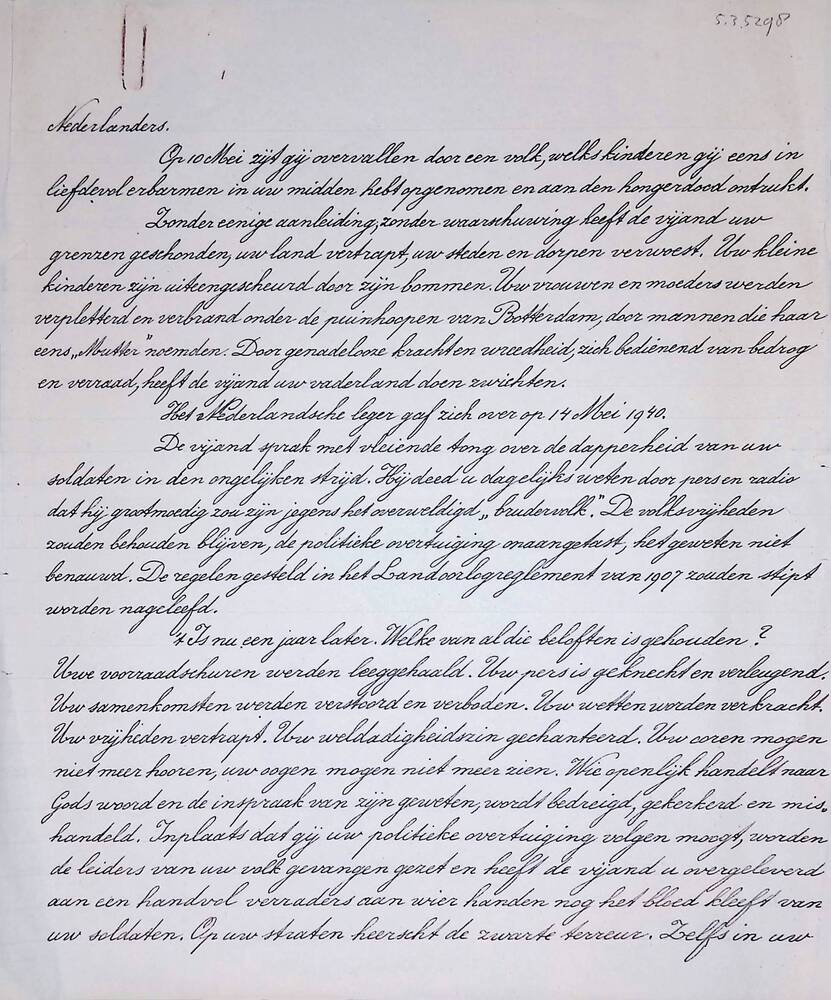 5.3.5298
Nederlanders.
Op 10 Mei zijt gij overvallen door een volk, welks kinderen gij eens in
liefdevol erbarmen in uw midden hebt opgenomen en aan den hongerdood ontrukt.
Zonder eenige aanleiding, zonder waarschuwing heeft de vijand uw
grenzen geschonden, uw land vertrapt, uw steden en dorpen verwoest. Uw kleine
kinderen zijn uiteengescheurd door zijn bommen. Uw vrouwen en moeders werden
verpletterd en verbrand onder de puinhoopen van Rotterdam, door mannen die haar
eens „Mutter" noemden. Door genadelooze kracht en wreedheid, zich bedienend van bedrog
en verraad, heeft de vijand uw vaderland doen zwichten.
Het Nederlandsche leger gaf zich over op 14 Mei 1940.
De vijand sprak met vleiende tong over de dapperheid van uw
soldaten in den ongelijken strijd. Hij deed u dagelijks weten door pers en radio
dat hij grootmoedig zou zijn jegens het overweldigd „brudervolk". De volksvrijheden
zouden behouden blijven, de politieke overtuiging onaangetast, het geweten niet
benauwd. De regelen gesteld in het Landoorlogreglement van 1907 zouden stipt
worden nageleefd.
't Is nu een jaar later. Welke van al die beloften is gehouden?
Uwe voorraadschuren werden leeggehaald. Uw pers is geknecht en verleugend.
Uw samenkomsten werden verstoord en verboden. Uw wetten worden verkracht.
Uw vrijheden vertrapt. Uw weldadigheidszin gechanteerd. Uw ooren mogen
niet meer hooren, uw oogen mogen niet meer zien. Wie openlijk handelt naar
Gods woord en de inspraak van zijn geweten, wordt bedreigd, gekerkerd en mis-
handeld. Inplaats dat gij uw politieke overtuiging volgen moogt, worden
de leiders van uw volk gevangen gezet en heeft de vijand u overgeleverd
aan een handvol verraders aan wier handen nog het bloed kleeft van
uw soldaten. Op uw straten heerscht de zwarte terreur. Zelfs in uw